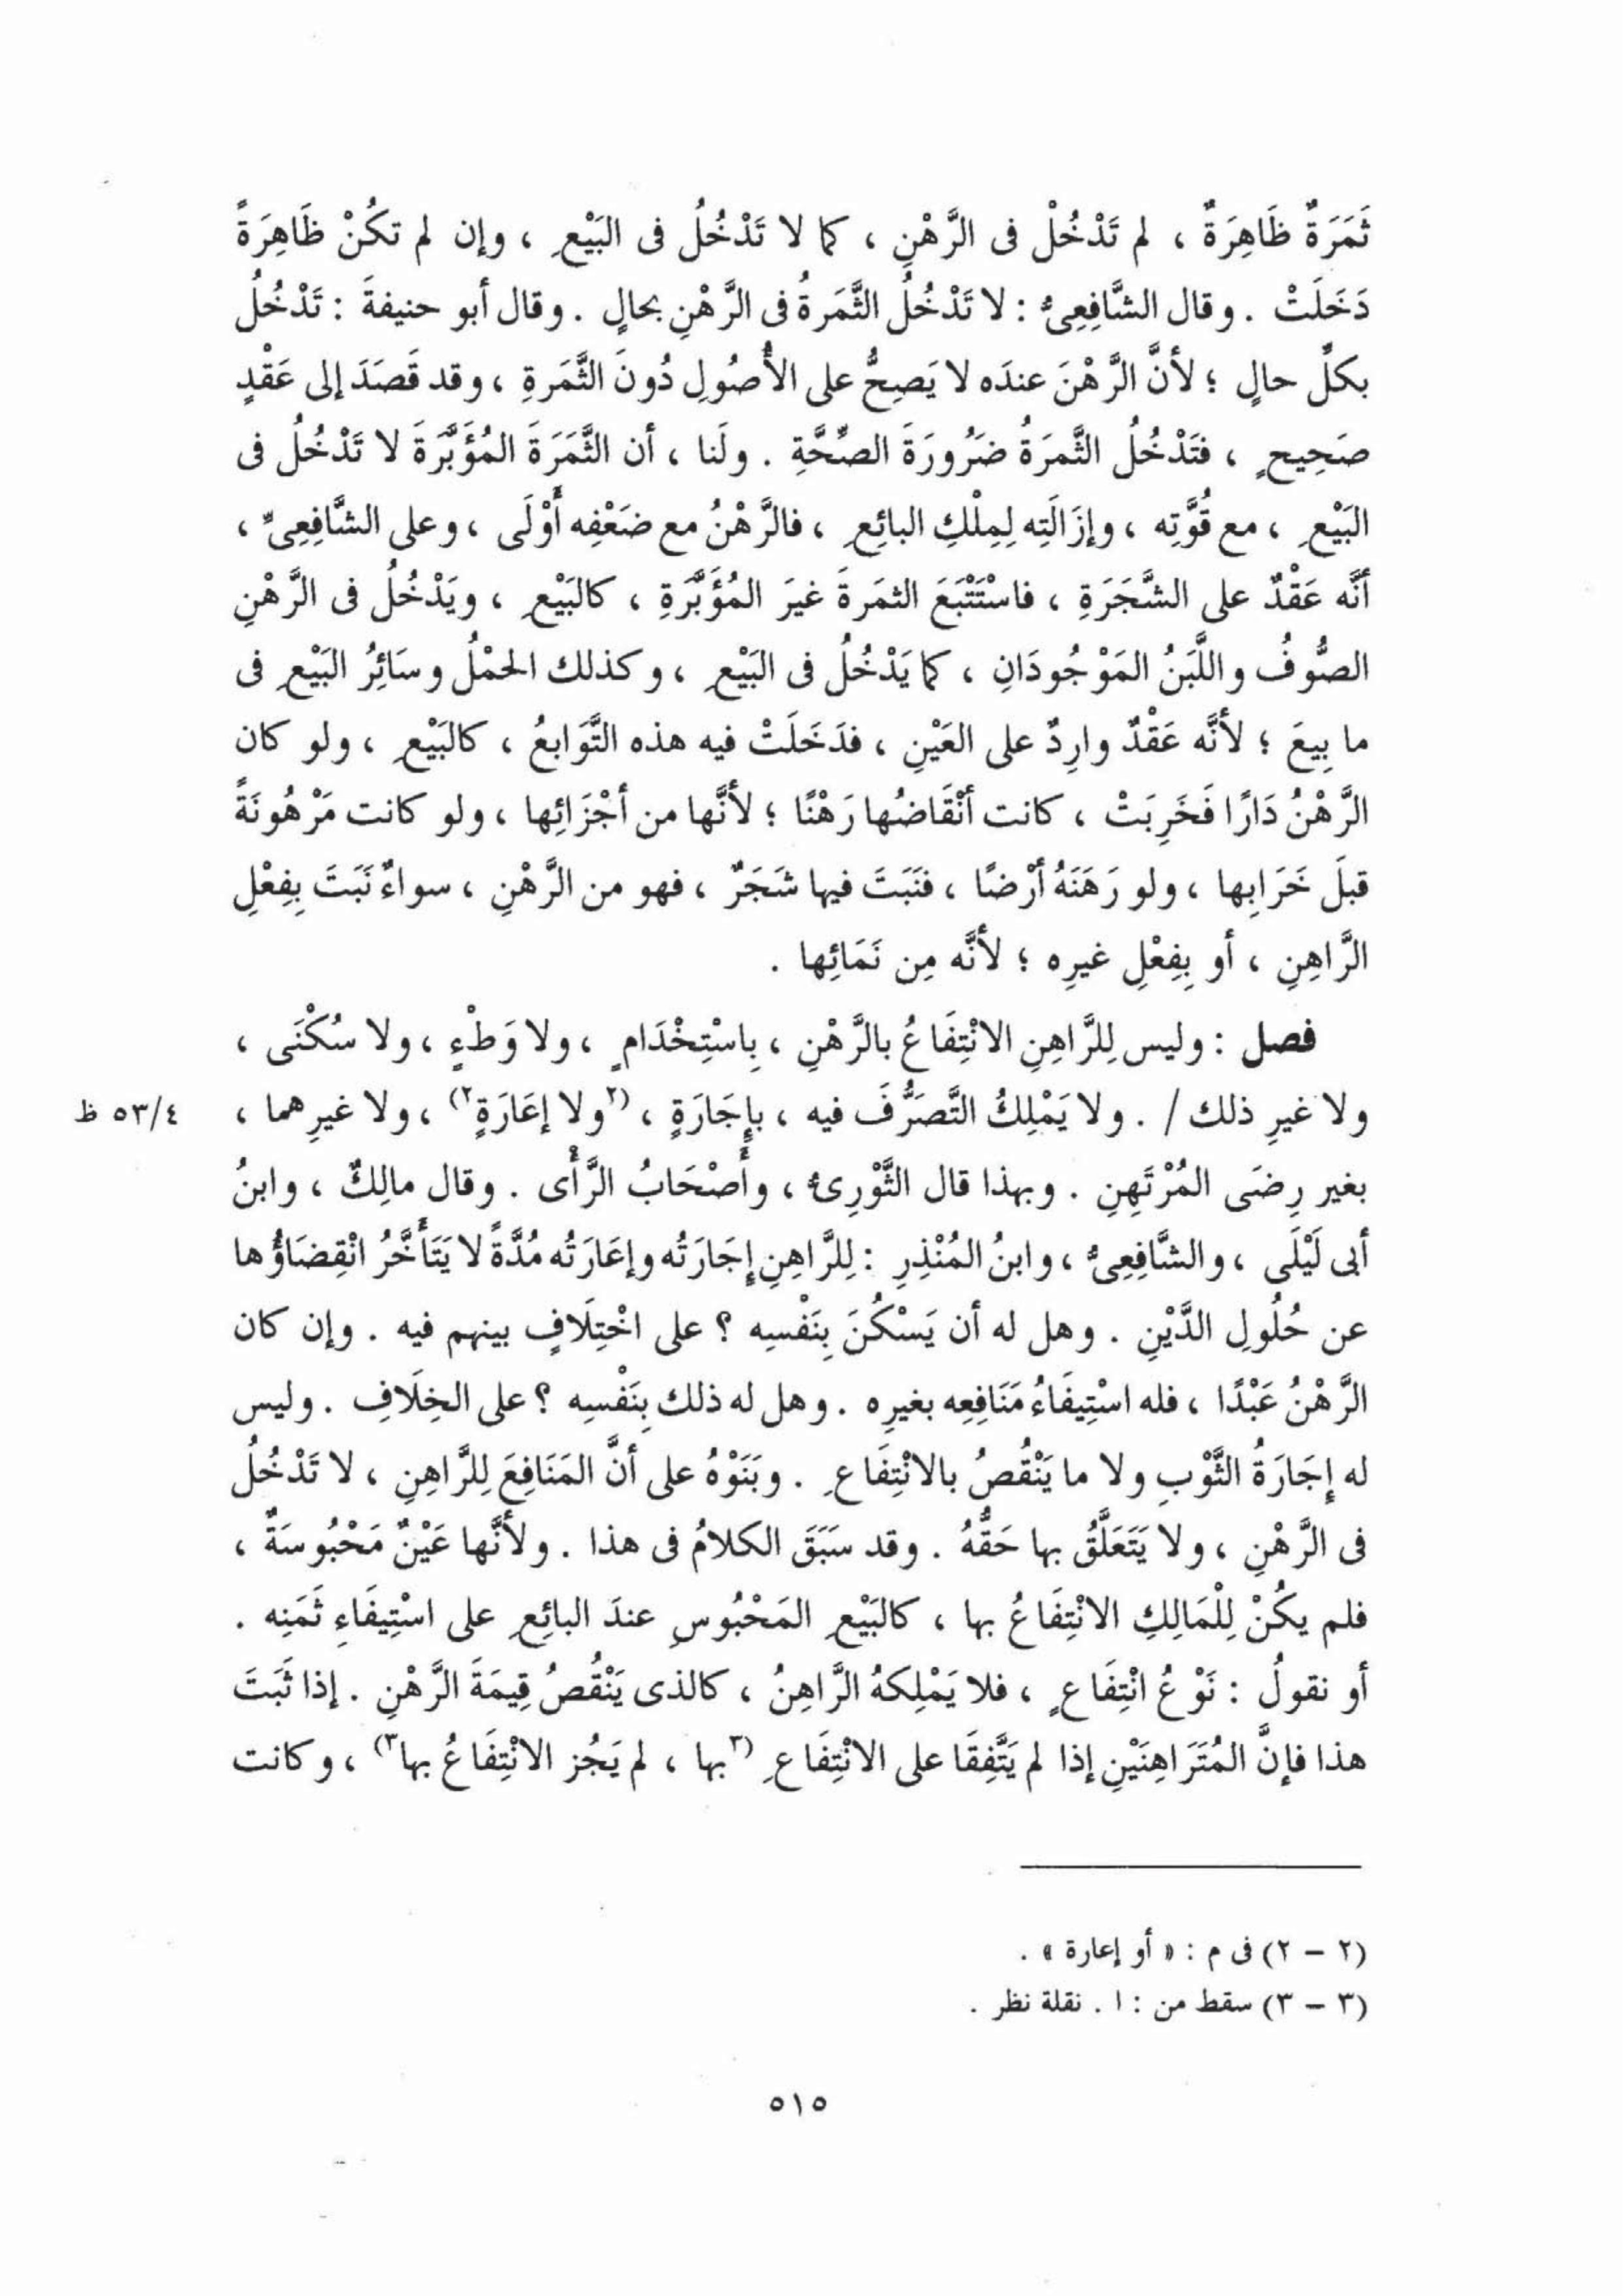 ثَمَرَةٌ ظَاهِرَةٌ ، لم تَدْخُلْ فى الرَّهْنِ ، كما لا تَدْخُلُ فى البَيْعِ ، وإن لم تكُنْ ظَاهِرَةً
دَخَلَتْ . وقال الشَّافِعِىُّ : لا تَدْخُلُ الثَّمَرةُ فى الرَّهْنِ بحالٍ . وقال أبو حنيفةَ : تَدْخُلُ
بكلِّ حالٍ ؛ لأنَّ الرَّهْنَ عندَه لا يَصِحُّ على الأُصُولِ دُونَ الثَّمَرةِ ، وقد قَصَدَ إلى عَقْدٍ
صَحِيحٍ ، فتَدْخُلُ الثَّمَرَةُ ضَرُورَةَ الصِّحَّةِ . ولَنا ، أن الثَّمَرَةَ المُؤَبَّرَةَ لا تَدْخُلُ فى
البَيْعِ ، مع قُوَّتِه ، وإزَالَتِه لِمِلْكِ البائِعِ ، فالرَّهْنُ مع ضَعْفِه أَوْلَى ، وعلى الشَّافِعِىِّ ،
أنَّه عَقْدٌ على الشَّجَرَةِ ، فاسْتَتْبَعَ الثمَرةَ غيرَ المُؤَبَّرَةِ ، كالبَيْعِ ، ويَدْخُلُ فى الرَّهْنِ
الصُّوفُ واللَّبَنُ المَوْجُودَانِ ، كما يَدْخُلُ فى البَيْعِ ، وكذلك الحمْلُ وسَائِرُ البَيْعِ فى
ما بِيعَ ؛ لأنَّه عَقْدٌ وارِدٌ على العَيْنِ ، فدَخَلَتْ فيه هذه التَّوَابعُ ، كالبَيْعِ ، ولو كان
الرَّهْنُ دَارًا فَخَرِبَتْ ، كانت أنْقَاضُها رَهْنًا ؛ لأنَّها من أجْزَائِها ، ولو كانت مَرْهُونَةً
قبلَ خَرَابِها ، ولو رَهَنَهُ أرْضًا ، فنَبَتَ فيها شَجَرٌ ، فهو من الرَّهْنِ ، سواءٌ نَبَتَ بِفِعْلِ
الرَّاهِنِ ، أو بِفِعْلِ غيرِه ؛ لأنَّه مِن نَمَائِها .
فصل : وليس لِلرَّاهِنِ الانْتِفَاعُ بالرَّهْنِ ، بِاسْتِخْدَامٍ ، ولا وَطْءٍ ، ولا سُكْنَى ،
ولا غيرِ ذلك / . ولا يَمْلِكُ التَّصَرُّفَ فيه ، بإِجَارَةٍ ، (٢ولا إعَارَةٍ٢) ، ولا غيرِهما ، ٥٣/٤ ظ
بغير رِضَى المُرْتَهِنِ . وبهذا قال الثَّوْرِىُّ ، وأَصْحَابُ الرَّأْى . وقال مالِكٌ ، وابنُ
أبى لَيْلَى ، والشَّافِعِىُّ ، وابنُ المُنْذِرِ : لِلرَّاهِنِ إجَارَتُه وإعَارَتُه مُدَّةً لا يَتَأَخَّرُ انْقِضَاؤُها
عن حُلُولِ الدَّيْنِ . وهل له أن يَسْكُنَ بِنَفْسِه ؟ على اخْتِلَافٍ بينهم فيه . وإن كان
الرَّهْنُ عَبْدًا ، فله اسْتِيفَاءُ مَنَافِعِه بغيرِه . وهل له ذلك بِنَفْسِه ؟ على الخِلَافِ . وليس
له إِجَارَةُ الثَّوْبِ ولا ما يَنْقُصُ بالانْتِفَاعِ . وبَنَوْهُ على أنَّ المَنَافِعَ لِلرَّاهِنِ ، لا تَدْخُلُ
فى الرَّهْنِ ، ولا يَتَعَلَّقُ بها حَقُّهُ . وقد سَبَقَ الكلامُ فى هذا . ولأنَّها عَيْنٌ مَحْبُوسَةٌ ،
فلم يكُنْ لِلْمَالِكِ الانْتِفَاعُ بها ، كالبَيْعِ المَحْبُوسِ عندَ البائِعِ على اسْتِيفَاءِ ثَمَنِه .
أو نقولُ : نَوْعُ انْتِفَاعٍ ، فلا يَمْلِكهُ الرَّاهِنُ ، كالذى يَنْقُصُ قِيمَةَ الرَّهْنِ . إذا ثَبَتَ
هذا فإنَّ المُتَرَاهِنَيْنِ إذا لم يَتَّفِقَا على الانْتِفَاعِ (٣بها ، لم يَجُز الانْتِفَاعُ بها٣) ، وكانت
(٢ – ٢) فى م : « أو إعارة » .
(٣ – ٣) سقط من : ا . نقلة نظر .
٥١٥